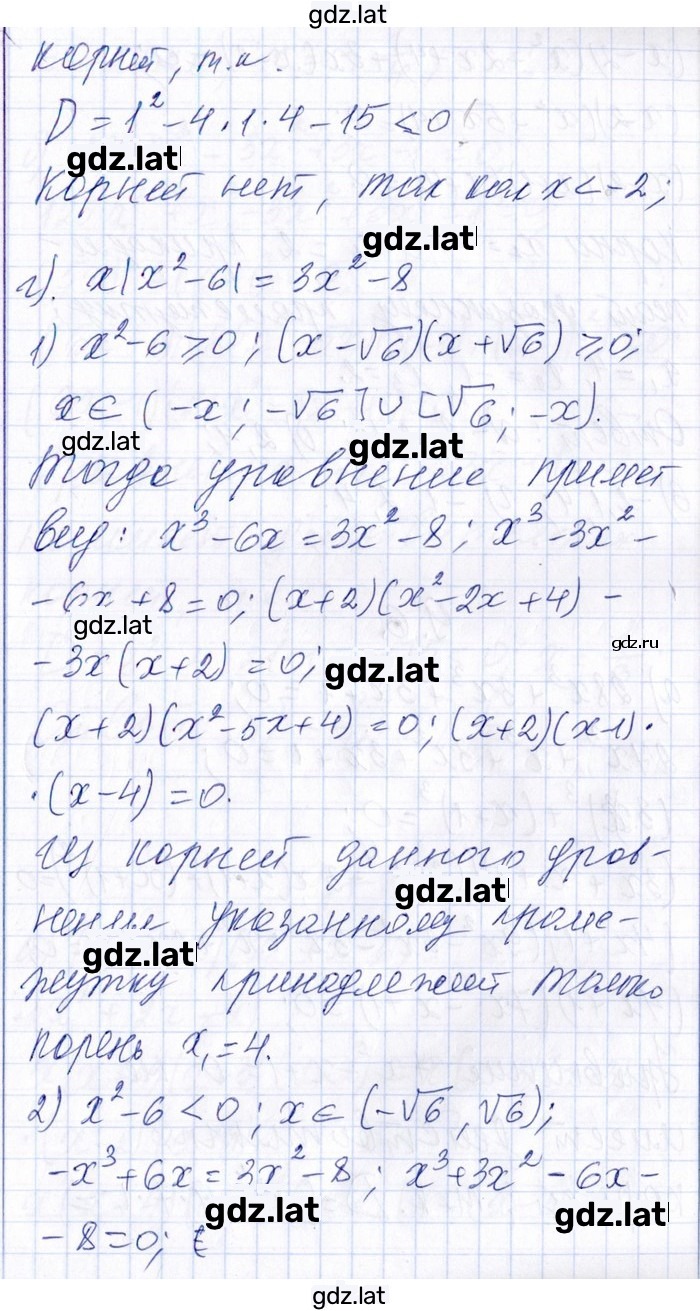 gdz.lat
корней, т.к.
D = 1² - 4 · 1 · 4 - 15 < 0
gdz.lat
корней нет, так как x < -2;
gdz.lat
г). x|x² - 6| = 3x² - 8
1) x² - 6 ⩾ 0; (x - √6)(x + √6) ⩾ 0;
x ∈ (-x; -√6] ∪ [√6; -x).
gdz.lat
Тогда уравнение примет
вид: x³ - 6x = 3x² - 8; x³ - 3x² -
- 6x + 8 = 0; (x + 2)(x² - 2x + 4) -
gdz.lat
gdz.ru
- 3x(x + 2) = 0;
gdz.lat
(x + 2)(x² - 5x + 4) = 0; (x + 2)(x - 1) ·
· (x - 4) = 0.
Из корней данного урав-
gdz.lat
нения указанному проме-
gdz.lat
жутку принадлежит только
корень x₁ = 4.
2) x² - 6 < 0; x ∈ (-√6, √6);
-x³ + 6x = 3x² - 8; x³ + 3x² - 6x -
gdz.lat
gdz.lat
- 8 = 0;
gdz.lat